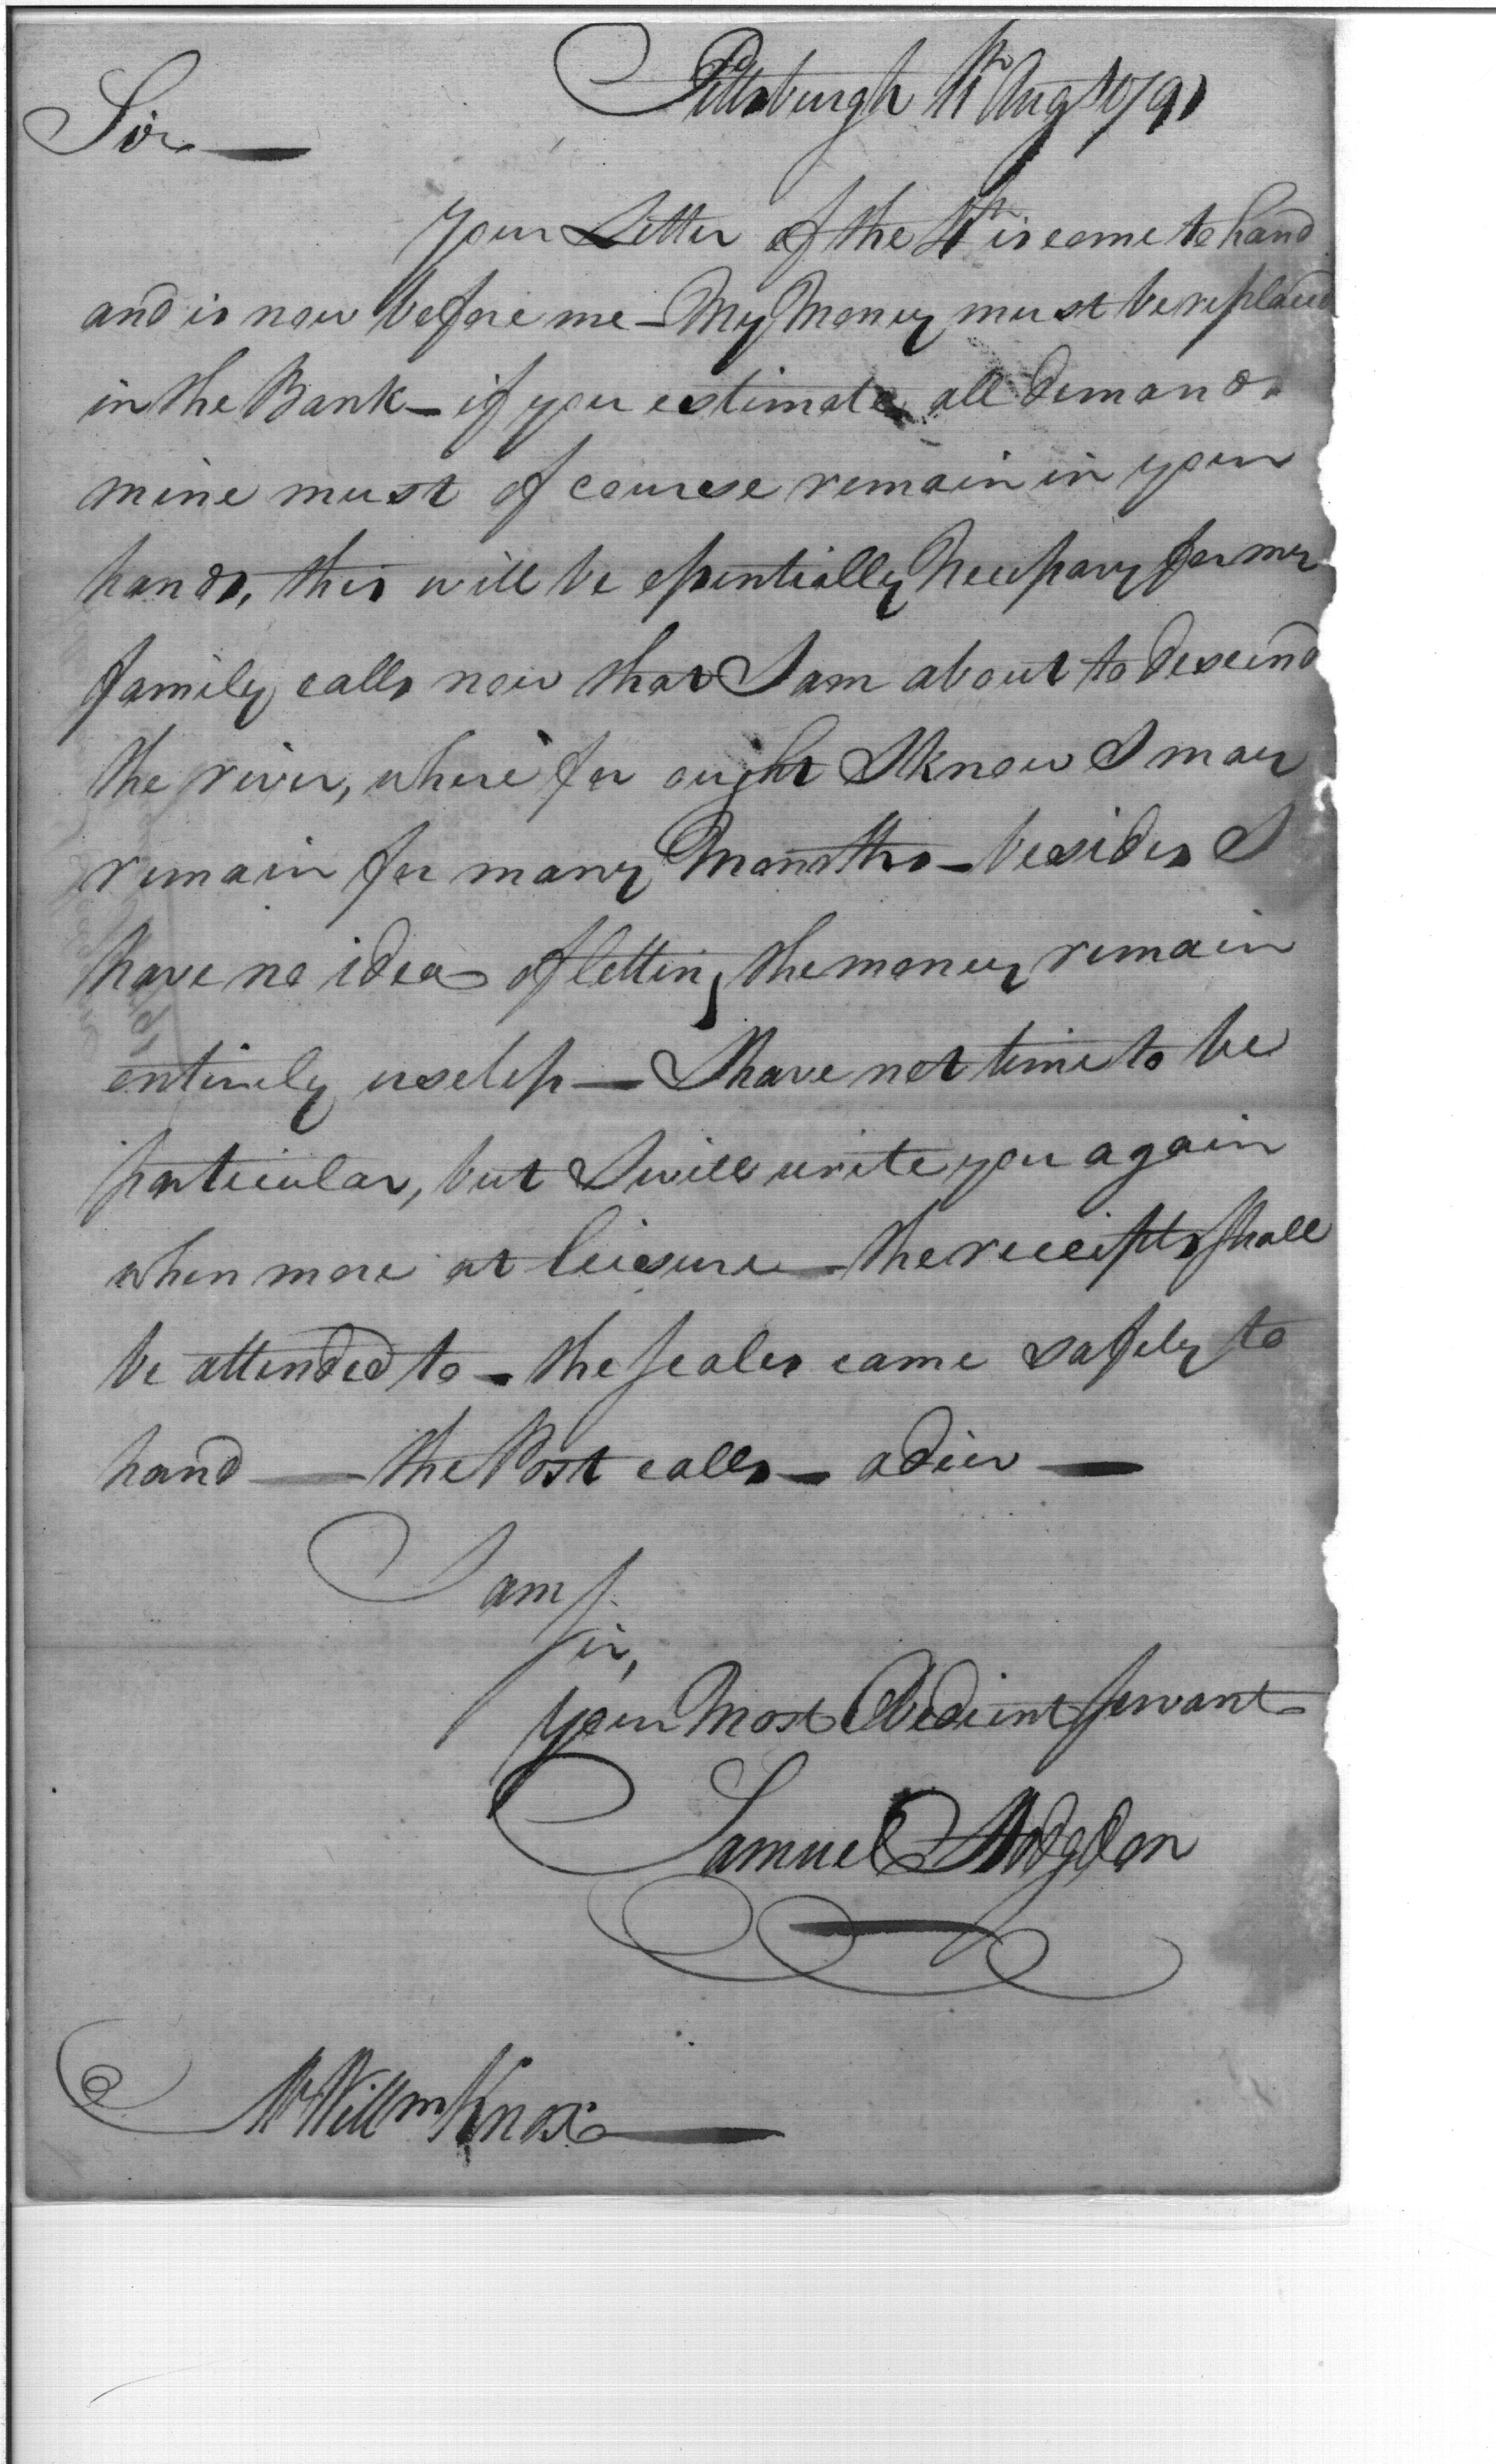 Pittsburgh 11th Augt 1791
Sir —
Your Letter of the 4th is come to hand
and is now before me — My Money must be replaced
in the Bank — if you estimate all demands
mine must of course remain in your
hands, this will be essentially Necessary for my
family calls now that I am about to descend
the river, where for ought I know I may
remain for many Months — besides I
have no idea of letting the money remain
entirely useless — I have not time to be
particular, but I will write you again
when more at leisure — the receipts shall
be attended to — the scales came safely to
hand — the Post calls — adieu —
I am
Sir,
Your Most Obedient servant
Samuel Hodgdon
Mr Willm Knox —